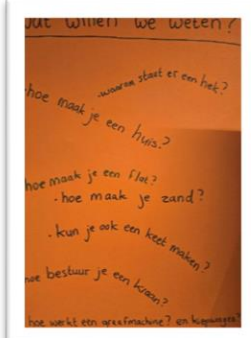 wat willen we weten?
·waarom staat er een hek?
·hoe maak je een huis?
hoe maak je een flat?
·hoe maak je zand?
·kun je ook een keet maken?
hoe bestuur je een kraan?
hoe werkt een graafmachine? en kiepwagen?